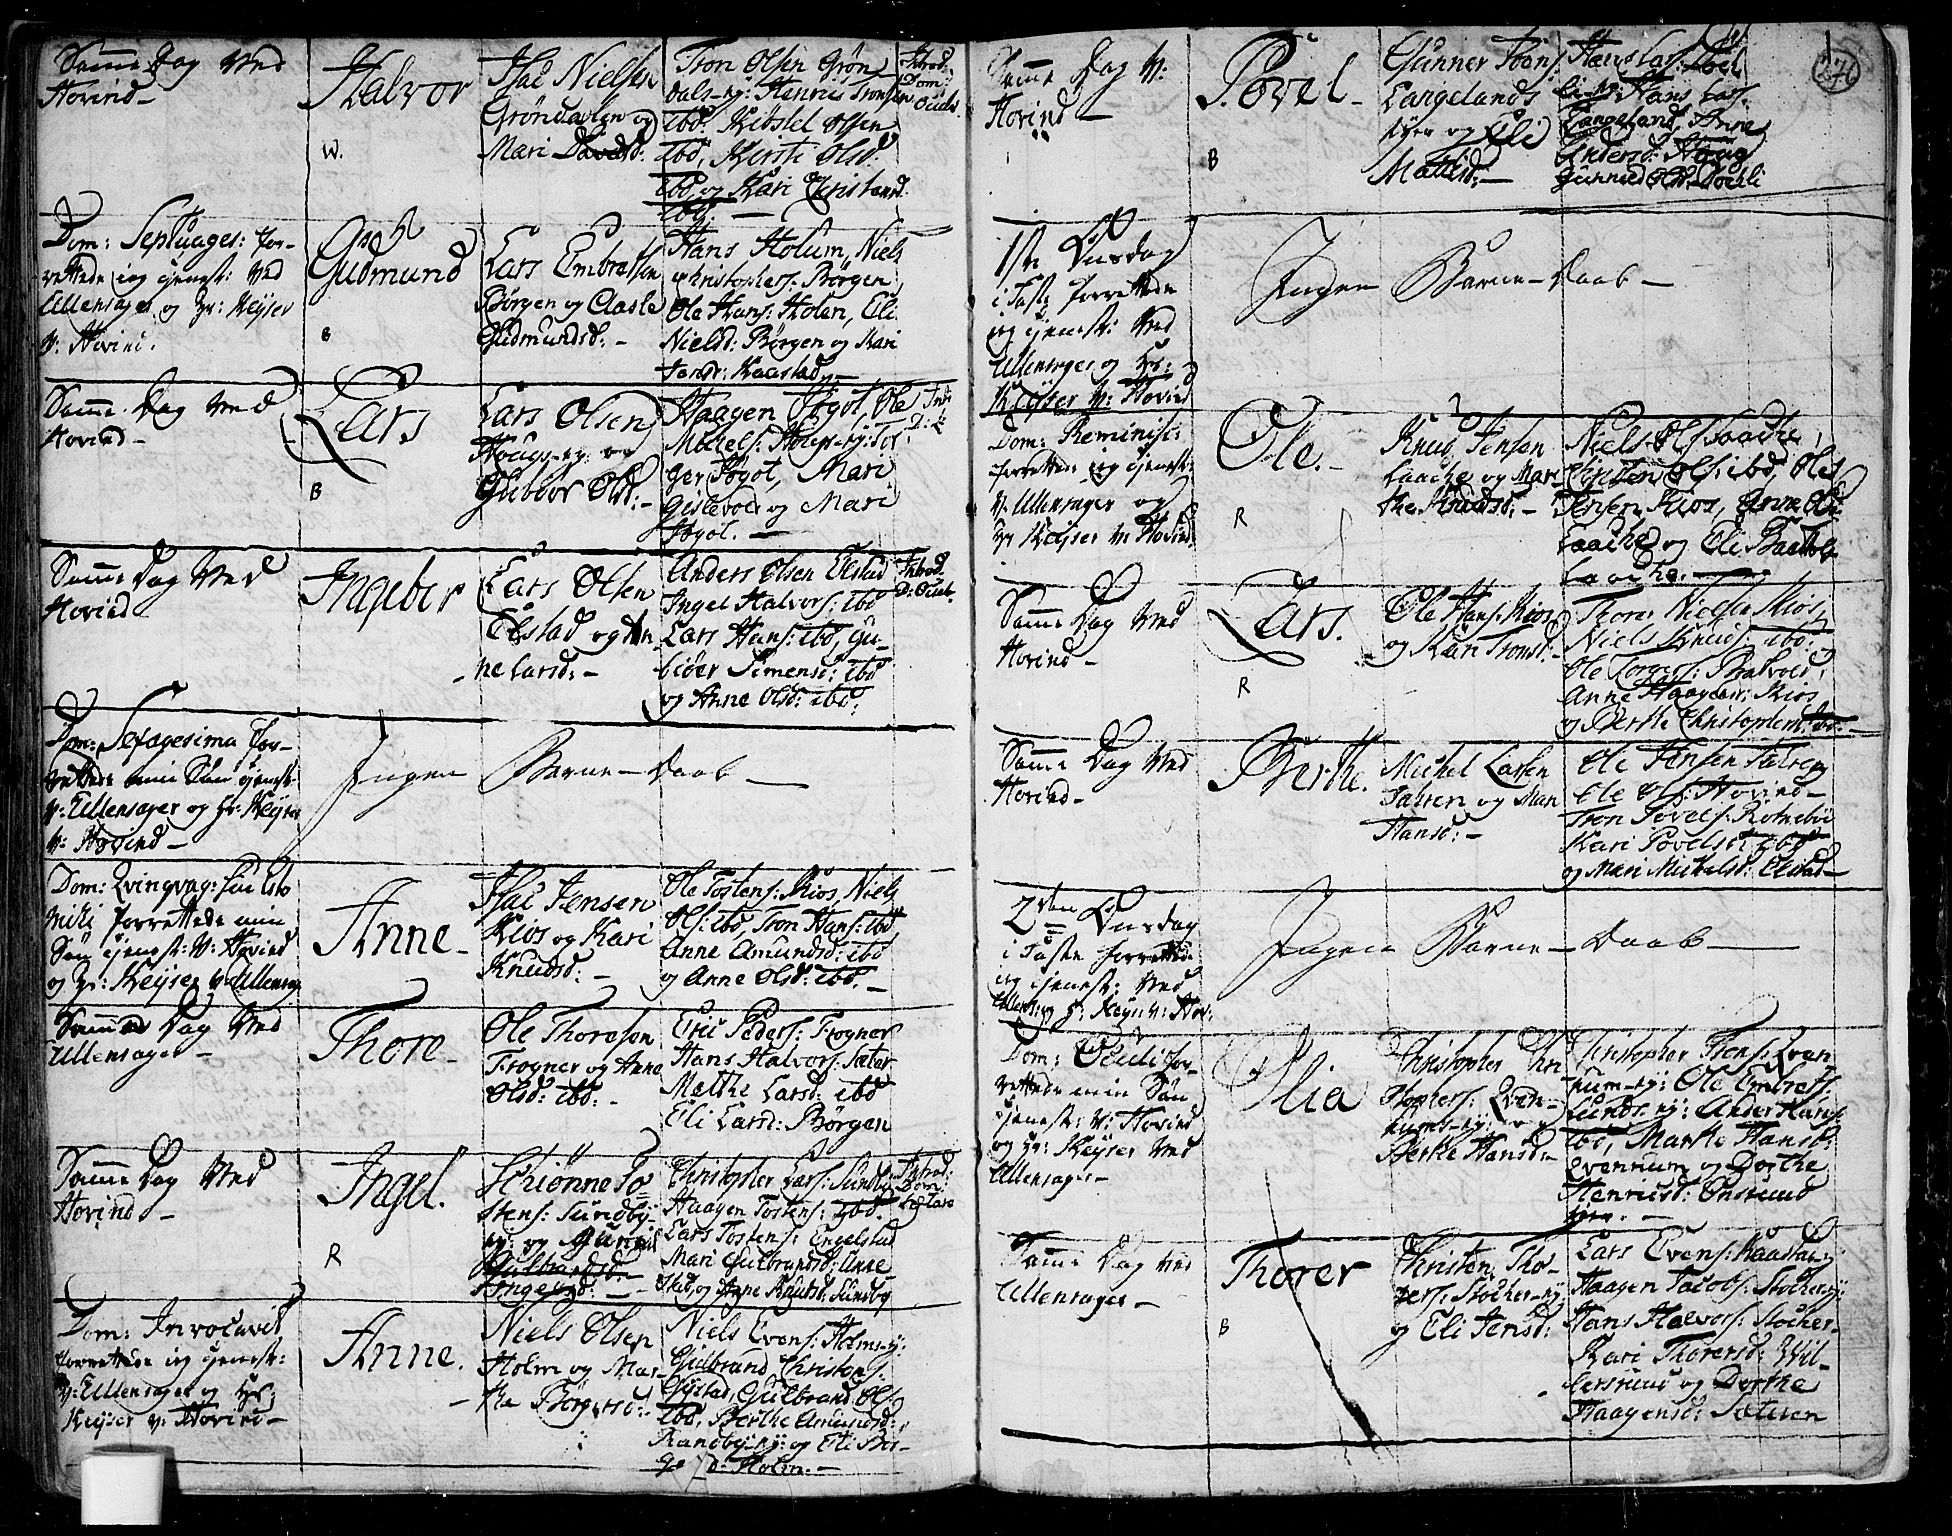 Samme Dag Ved
Hovind –
Halvor
W.
Isac Nielsen
Gröndalen og
Mari Davidsd:
Tron Olsen Grön
dals-ej: Henric Tronsen
ibd: Kibstel Olsen
ibd, Kersti Olsd:
ibd og Kari Christensd.
ibd. –
Introd.
Dom
Oculi
Dom: Septuages: for-
rettede ieg tienest: Ved
Ullensager og Hr: Keyser
V: Hovind.
Gudmund
B
Lars Embretsen
Börgen og Claske
Gudmundsd: –
Hans Holum, Niels
Christophers: Börgen
Ole Hans: Holen, Eli
Nielsd: Börgen og Kari
Jensd: Kaastad –
Samme Dag Ved
Hovind –
Lars
B
Lars Olsen
Hougs-ej: og
Gubior Olsd: –
Haagen Fogot, Ole
Michels: Hougs-ej: Tol
ger Fogot, Mari
Gislevold og Mari
Fogot. –
Samme Dag Ved
Hovind –
Ingebor
Lars Olsen
Elstad og An
ne Larsd: –
Anders Olsen Elstad
Ingel Halvors: ibd
Lars Hans: ibd, Gu-
biöer Simensd: ibd
og Anne Olsd: ibd:
Introd.
D: Oculi.
Dom: Sexagesima for-
rettede min Sön tienest:
V: Ullensager og Hr: Keyser
V: Hovind –
Ingen Barne-Daab –
Dom: Qvinqvag: Fasti Esto
mihi forrettede min
Sön tienest: V: Hovind
og Hr: Keyser V: Ullensag
Anne –
Isac Jensen
Kios og Kari
Knudsd: –
Ole Tostens: Kios, Niels
Ols: ibd, Tron Hans: ibd
Anne Amundsd: ibd
og Anne Olsd: ibd. –
Samme Dag Ved
Ullensager –
Thore –
Ole Thoresen
Frogner og Anne
Olsd: ibd: –
Eric Peders: Frogner
Hans Halvors: Sæter
Malthe Larsd: ibd
Eli Larsd: Börgen
Samme Dag Ved
Hovind –
Ingel.
R
Schiönne To
stens: Sundby-
ej: og Gunild
Gulbrandsd: –
Christopher Lars: Sundby
Haagen Tostens: ibd:
Lars Tostens: Engelstad
Mari Gulbrandsd: Anne
Stad, og Anne Knudsd: Sundby
Introd:
Dom
Lætare
Dom: Invocavit
forrettede ieg tienest:
V: Ullensager og Hr:
Keyser V: Hovind –
Anne.
Niels Olsen
Holm og Mar-
the Börgersd: –
Niels Evens: Holms-ej:
Gulbrand Christens:
Gystad, Gulbrand Ols:
ibd, Berthe Amundsd:
Randby-ej: og Eli Bör-
ge d: Holm. –
276
Samme Dag V:
Hovind –
Povel –
B
Gunner Povels:
Langelands
eyer og Eli
Mattisd: –
Hans Lars:
Langeland, Anne
Andersd: Haug
Gunnild Olsd:
1ste Onsdag
i Faste forrettede
ieg tienest: Ved
Ullensager og Hr:
Keyser V: Hovind
Ingen Barne-Daab –
Dom: Reminisc:
forrettede ieg tienest:
V: Ullensager og
Hr Keyser V: Hovind
Ole. –
R
Knud Jensen
Laache og Mar
the Knudsd: –
Niels Ols: Laache,
Christen Ols: ibd, Ole
Jensen Kios, Anne Ols
Laache og Eli
Laache. –
Samme Dag Ved
Hovind –
Lars.
R
Ole Hans: Kios
og Kari Tronsd: –
Thorer Nielsen Kios,
Niels Knuds: ibd:
Ole Torgers: Bratvold,
Anne Haagensd: Kios
og Berthe Christophersd: ibd. –
Samme Dag Ved
Hovind –
Berthe.
Michel Larsen
Jalsen og Mari
Hansd: –
Ole Jensen
Ole Ols: Hovind –
Tron Povels: Rotnebü
Kari Povelsd: ibd
og Mari Michelsd: Elstad –
2den Onsdag
i Faste forrettede
ieg tienest: Ved
Ullens: og H: Keyser V: Hov:
Ingen Barne-Daab –
Dom: Oculi for-
rettede min Sön
tienest: V: Hovind
og Hr: Keyser Ved
Ullensager –
Olia
Christopher Chri
stophers: Qven-
rums-ej: og
Berthe Hansd: –
Christopher Trons: Qven
rum-ej: Ole Embrets:
Lunds-ej: Anders Hans:
ibd, Marthe Hansd:
Qvenrum og Dorthe
Henricsd: Onsrud
eyer. –
Samme Dag Ved
Ullensager –
Thorer
B
Christen Tho-
rers: Stocher-ej:
og Eli Jensd:
Lars Evens: Kaastad-ej:
Haagen Jacobs: Stocher-ej:
Hans Halvors: Stocher-
Kari Thorersd: Wil-
bersrud og Dorthe
Haagensd: Sæteren